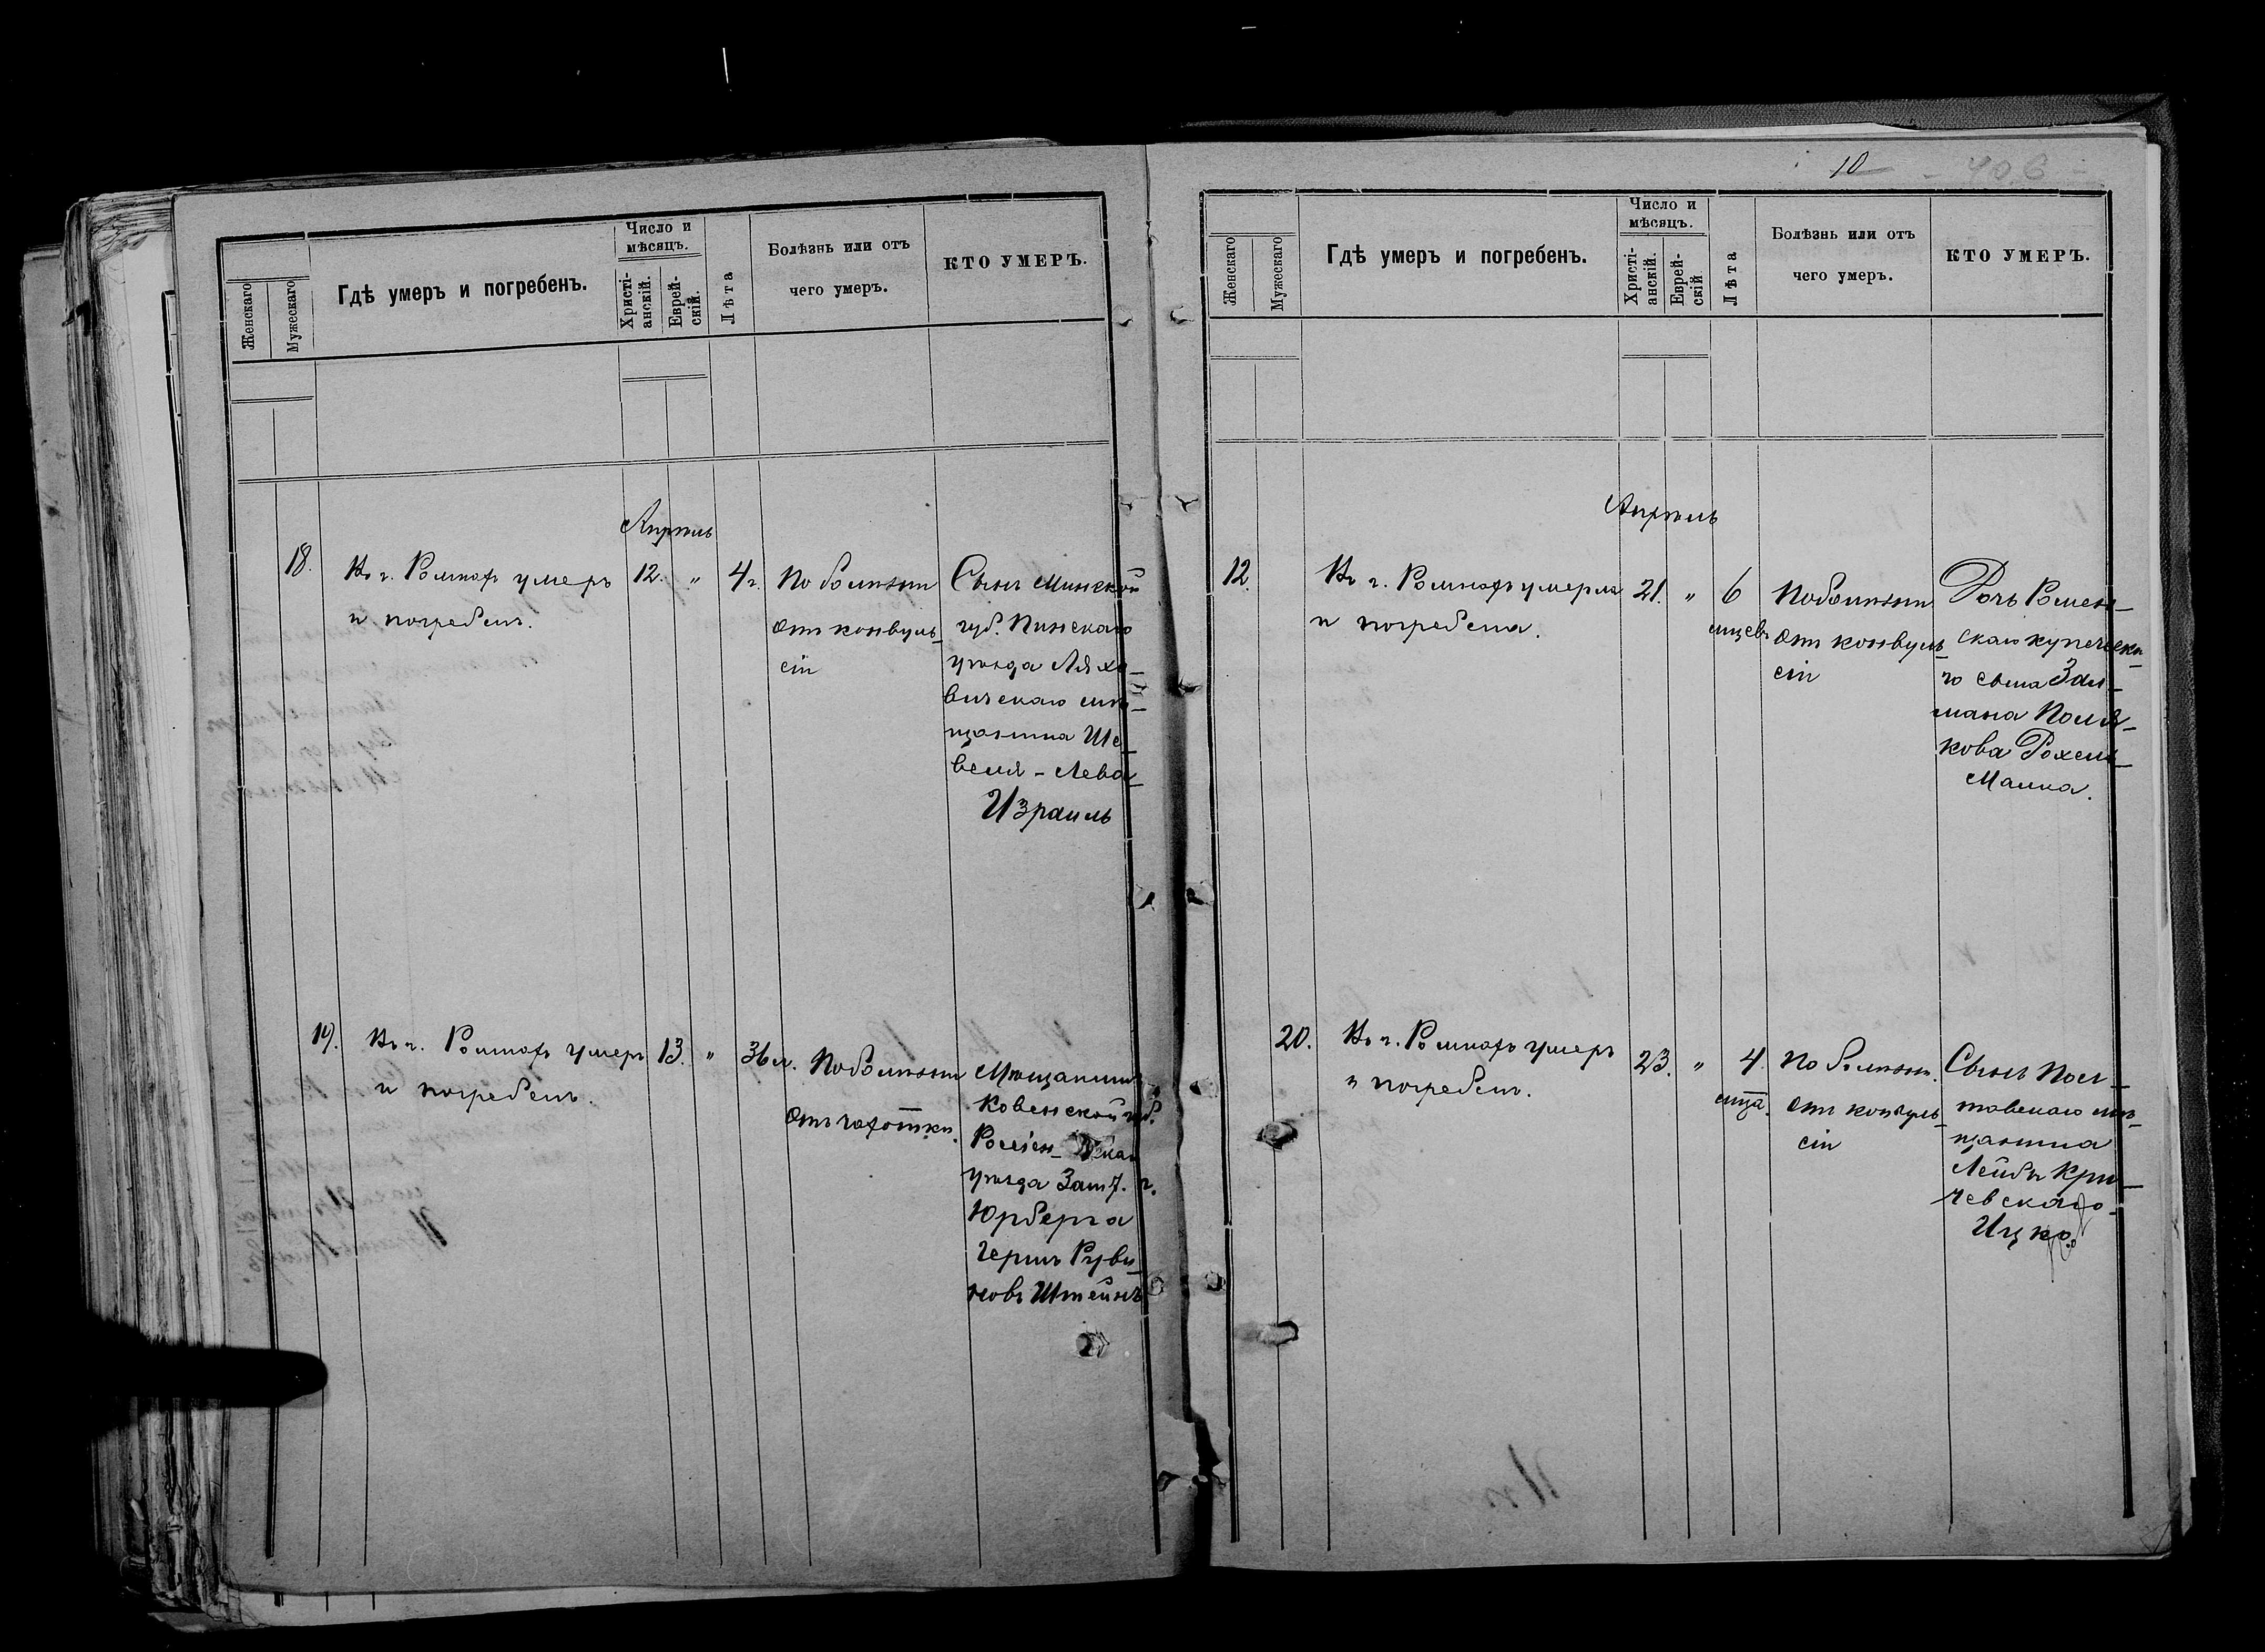 Женскаго
Мужескаго
Гдѣ умеръ и погребенъ.
Число и
мѣсяцъ.
Христі-
анскій.
Еврей-
скій.
Лѣта
Болѣзнь или отъ
чего умеръ.
КТО УМЕРЪ.
Апрѣль
18.
Въ г. Ромнахъ умеръ
и погребенъ.
12.
"
4 г.
По болѣзни
отъ конвуль-
сіи
Сынъ Минской
губ. Пинскаго
уѣзда Ляхо-
вичскаго мѣ-
щанина Ше-
веля-Лева
Израиль
19.
Въ г. Ромнахъ умеръ
и погребенъ.
13.
"
36 л.
По болѣзни
отъ чахотки.
Мѣщанинъ
Ковенской губ.
Россіен-
уѣзда Зашт. г.
Юрберга
Герцъ Руви-
новъ Штейнъ
10
406
Женскаго
Мужескаго
Гдѣ умеръ и погребенъ.
Число и
мѣсяцъ.
Христі-
анскій.
Еврей-
скій
Лѣта
Болѣзнь или отъ
чего умеръ.
КТО УМЕРЪ.
Апрѣль
12.
Въ г. Ромнахъ умерла
и погребена.
21.
"
6
мцевъ
По болѣзни
отъ конвуль-
сіи
Дочь Ромен-
скаго купечска-
го сына Зал-
мана Поля-
кова Рохель-
Малка.
20.
Въ г. Ромнахъ умеръ
и погребенъ.
23.
"
4.
мца.
По болѣзни.
отъ конвуль-
сіи
Сынъ Пол-
тавскаго мѣ-
щанина
Лейбы Кри-
чевскаго-
Ицко.